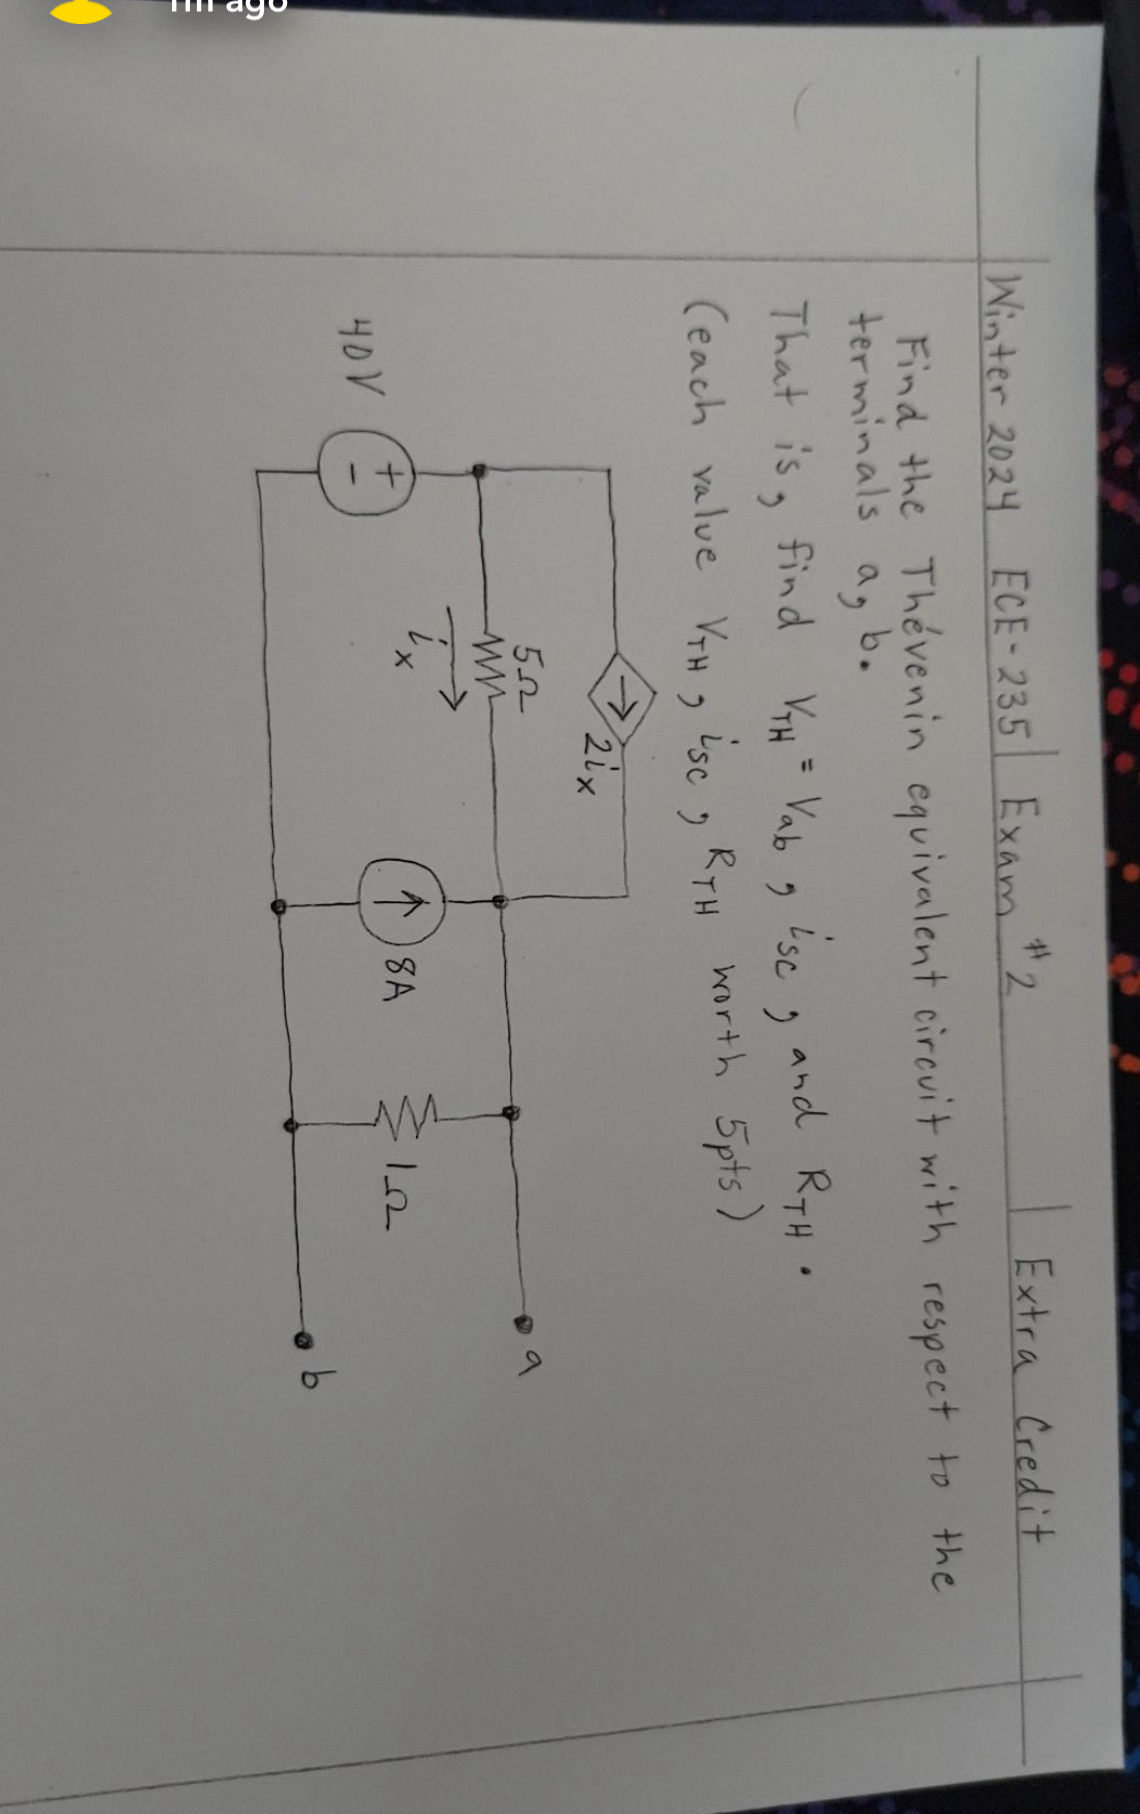 1m ago
Winter 2024 ECE-235 Exam #2 Extra Credit
Find the Thévenin equivalent circuit with respect to the
terminals a, b.
That is, find VTH = Vab, isc, and RTH.
(each value VTH, isc, RTH worth 5pts)
2ix
5Ω
ix
40V
+
-
8A
1Ω
a
b